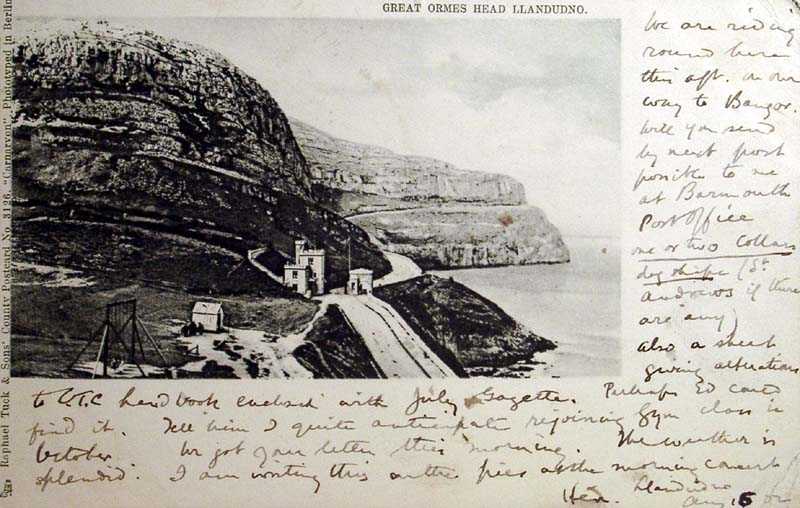 GREAT ORMES HEAD LLANDUDNO.
Raphael Tuck & Sons' County Postcard No. 3126. "Carnarvon" Phototyped in Berlin
We are riding
round here
this aft. on our
way to Bangor.
Will you send
by next post
possible to me
at Barmouth
Post Office
one or two Collars
dog shape (St.
Andrews if there
are any)
also a sheet
giving alterations
to C.T.C handbook enclosed with July Gazette. Perhaps Ed could
find it. Tell him I quite anticipate rejoining Gym class in
October. We got your letter this morning. The weather is
splendid. I am writing this on the pier at the morning concert
Llandudno
Aug. 5